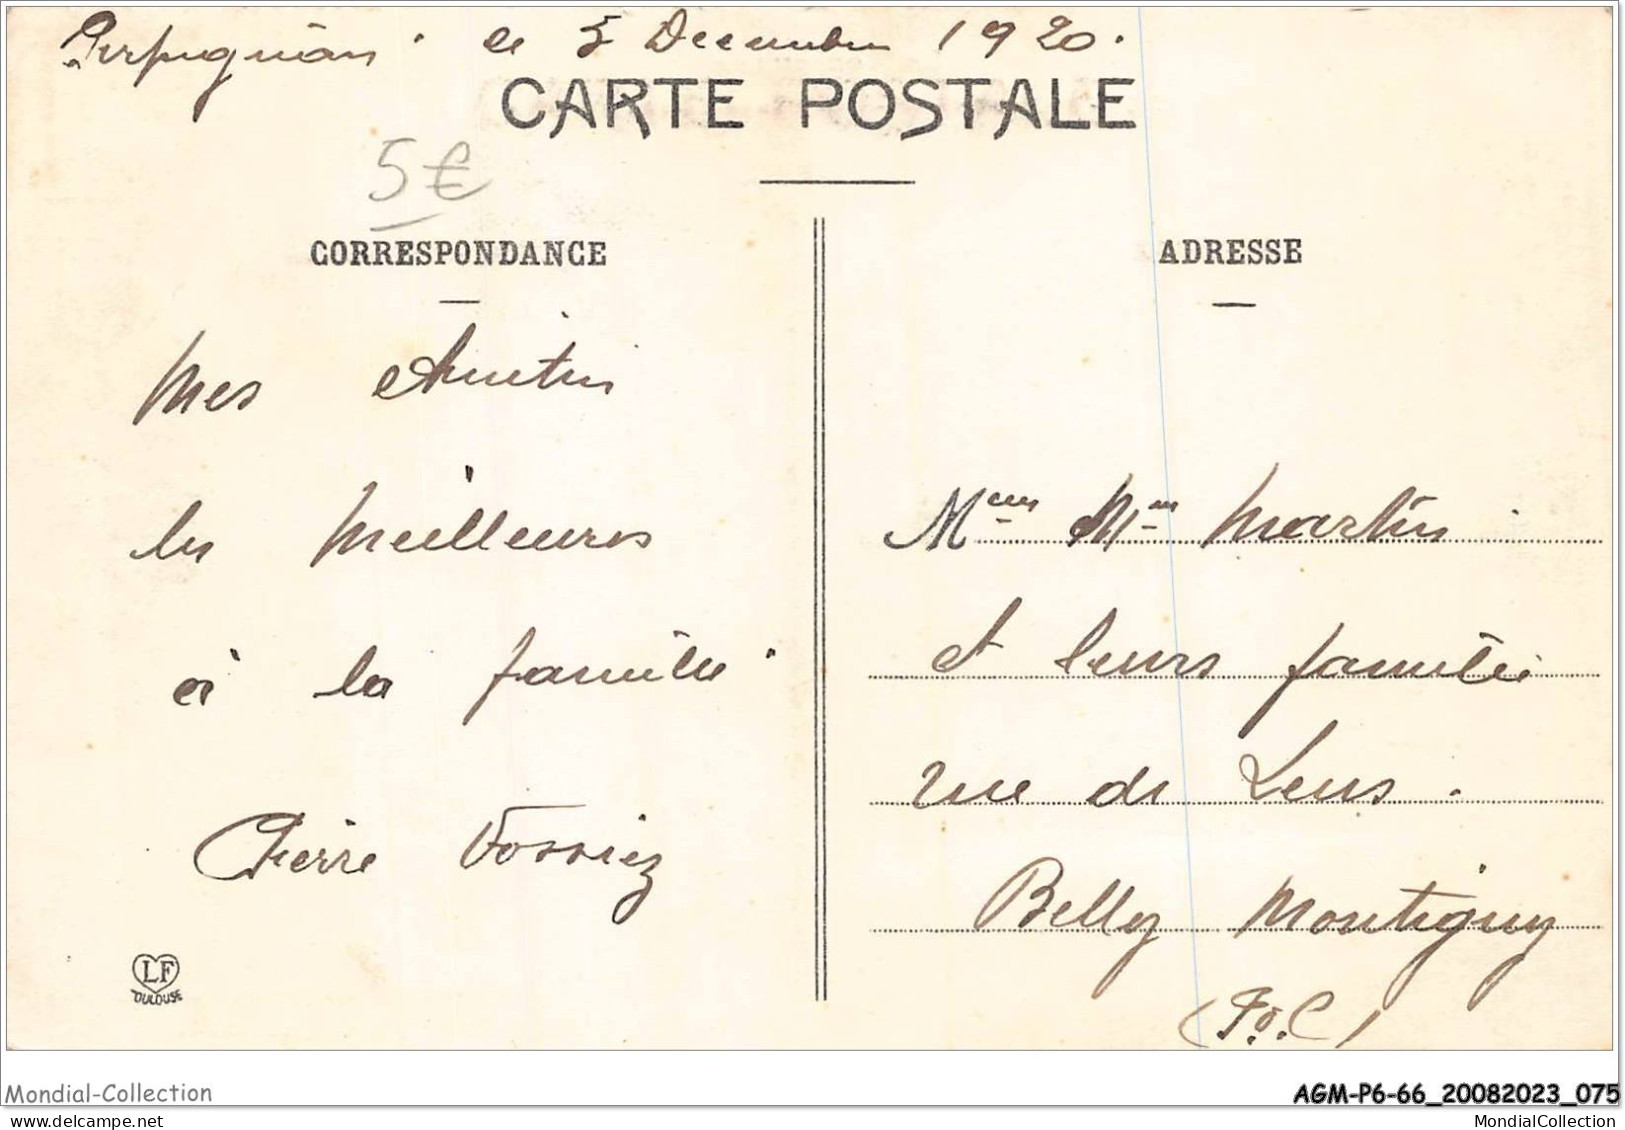 Perpignan le 5 Decembre 1920.
CARTE POSTALE
5€
CORRESPONDANCE
ADRESSE
Mes Amitiés
les Meilleures
à la famille
Pierre
LF
TOULOUSE
Mr Mme Martin
et leurs famille
rue de Lens.
Belly Montigny
(P.d.C)
Mondial-Collection
delcampe.net
AGM-P6-66_20082023_075
MondialCollection